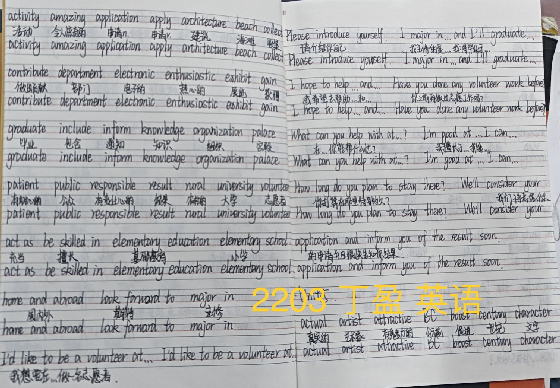 activity amazing application apply architecture beach collect
活动 令人惊奇的 申请 申请 建筑 海滩
activity amazing application apply architecture beach collect
contribute department electronic enthusiastic exhibit gain
做贡献 部门 电子的 热心的 展览 获得
contribute department electronic enthusiastic exhibit gain
graduate include inform knowledge organization palace
毕业 包含 通知 知识 组织 宫殿
graduate include inform knowledge organization palace
patient public responsible result rural university volunteer
有耐心的 公众 有责任心的 结果 大学 志愿者
patient public responsible result rural university volunteer
act as be skilled in elementary education elementary school
充当 擅长 基础教育 小学
act as be skilled in elementary education elementary school
home and abroad look forward to major in
国内外 期待 主修
home and abroad look forward to major in
I'd like to be a volunteer at... I'd like to be a volunteer at
我想在...做一名志愿者.
Please introduce yourself I major in... and I'll graduate...
Please introduce yourself I major in... and I'll graduate...
I hope to help... and... Have you done any volunteer work before
I hope to help... and... Have you done any volunteer work before
What can you help with at...? I'm good at... I can...
What can you help with at...? I'm good at... I can...
How long do you plan to stay here? We'll consider your
How long do you plan to stay there? We'll consider your
application and inform you of the result soon.
application and inform you of the result soon.
2203 丁盈 英语
actual artist attractive BC boost century character
actual artist attractive BC boost century character